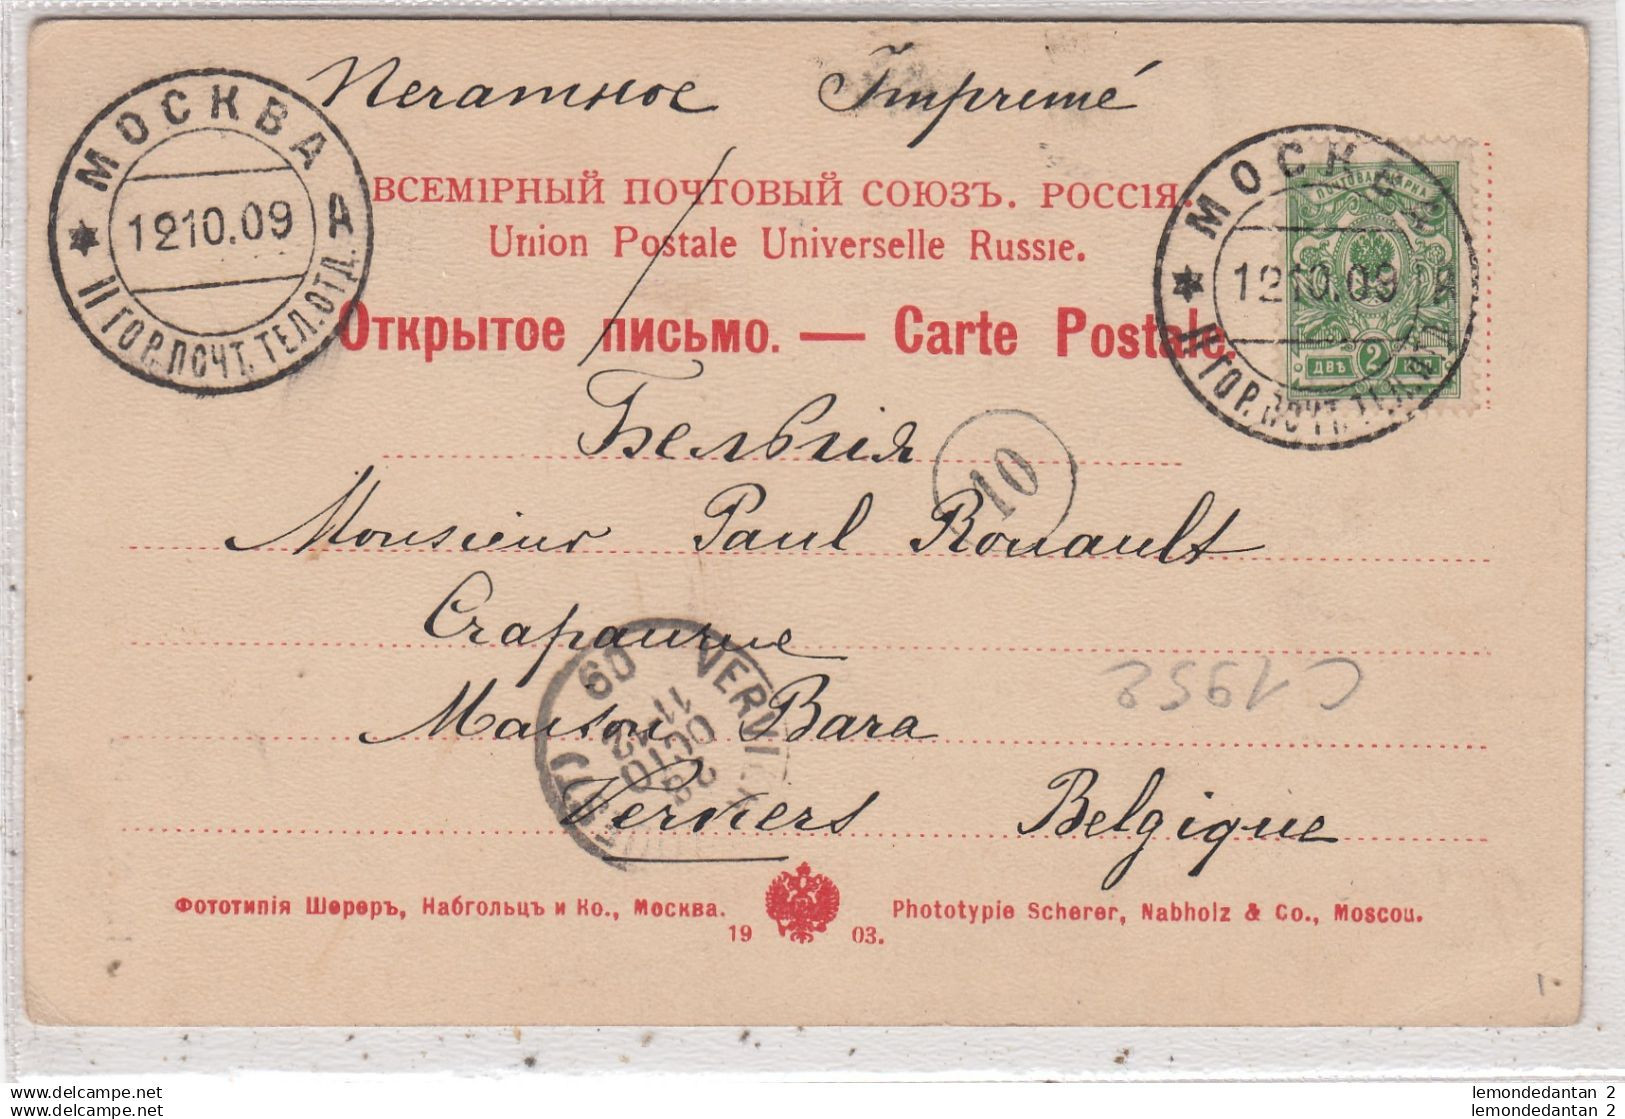 Печатное Imprimé
ВСЕМІРНЫЙ ПОЧТОВЫЙ СОЮЗЪ. РОССІЯ.
Union Postale Universelle Russie.
Открытое письмо. — Carte Postale.
МОСКВА
12 10.09
А
II ГОР. ПОЧТ. ТЕЛ. ОТД.
МОСКВА
12 10.09
II ГОР. ПОЧТ. ТЕЛ. ОТД.
ПОЧТОВАЯ МАРКА
ДВѢ 2 КОП.
Бельгія
10
Monsieur Paul Rouault
Crapaurue
Maison Bara
Verviers Belgique
VERVIERS
11 12
28 OCTO
09
C1952
Фототипія Шереръ, Набгольцъ и Ко., Москва.
19 03.
Phototypie Scherer, Nabholz & Co., Moscou.
1
www.delcampe.net
www.delcampe.net
lemondedantan 2
lemondedantan 2